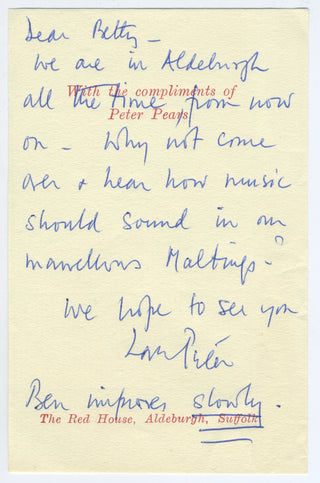 Dear Betty -
We are in Aldeburgh
With the compliments of
all the time from now
Peter Pears
on - Why not come
over & hear how music
should sound in our
marvellous Maltings - ?
We hope to see you
Love Peter
Ben improves slowly.
The Red House, Aldeburgh, Suffolk